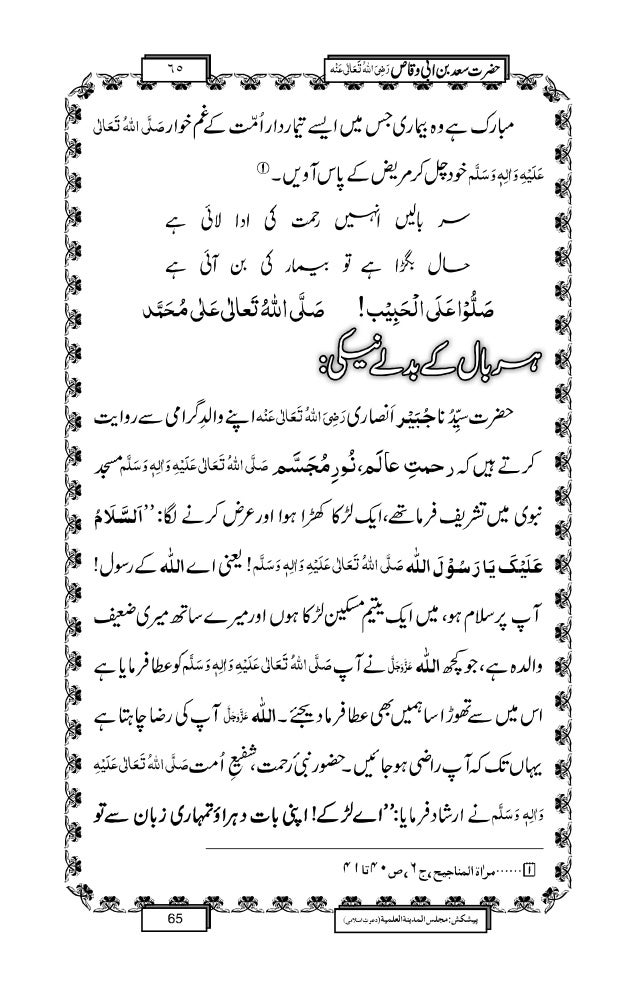 حضرت سعد بن ابی وقاص رَضِیَ اللہُ تَعَالٰی عَنْہ
٦٥
مبارک ہے وہ بیماری جس میں ایسے تیماردار اُمّت کے غم خوار صَلَّی اللہُ تَعَالٰی
عَلَیْہِ وَاٰلِہٖ وَسَلَّم خود چل کر مریض کے پاس آویں۔ ①
سر بالیں انہیں رحمت کی ادا لائی ہے
حال بگڑا ہے تو بیمار کی بن آئی ہے
صَلُّوْا عَلَی الْحَبِیْب! صَلَّی اللہُ تَعالٰی عَلٰی مُحَمَّد
ہر بال کے بدلے نیکی:
حضرت سیِّدُنا جُبَیْر اَنصاری رَضِیَ اللہُ تَعَالٰی عَنْہ اپنے والدِ گرامی سے روایت
کرتے ہیں کہ رحمتِ عالَم، نُورِ مُجَسَّم صَلَّی اللہُ تَعَالٰی عَلَیْہِ وَاٰلِہٖ وَسَلَّم مسجد
نبوی میں تشریف فرما تھے، ایک لڑکا کھڑا ہوا اور عرض کرنے لگا: ’’اَلسَّلَامُ
عَلَیْکَ یَا رَسُوْلَ اللہ صَلَّی اللہُ تَعَالٰی عَلَیْہِ وَاٰلِہٖ وَسَلَّم! یعنی اے اللہ کے رسول!
آپ پر سلام ہو، میں ایک یتیم مسکین لڑکا ہوں اور میرے ساتھ میری ضعیف
والدہ ہے، جو کچھ اللہ عَزَّوَجَلَّ نے آپ صَلَّی اللہُ تَعَالٰی عَلَیْہِ وَاٰلِہٖ وَسَلَّم کو عطا فرمایا ہے
اس میں سے تھوڑا سا ہمیں بھی عطا فرما دیجئے۔ اللہ عَزَّوَجَلَّ آپ کی رضا چاہتا ہے
یہاں تک کہ آپ راضی ہو جائیں۔ حضور نبیٔ رحمت، شفیعِ اُمت صَلَّی اللہُ تَعَالٰی عَلَیْہِ
وَاٰلِہٖ وَسَلَّم نے ارشاد فرمایا: ’’اے لڑکے! اپنی بات دہراؤ تمہاری زبان سے تو
1 ......مراٰۃ المناجیح، ج ٦، ص ٤٠ تا ٤١
پیشکش: مجلس المدینۃ العلمیۃ (دعوتِ اسلامی)
65